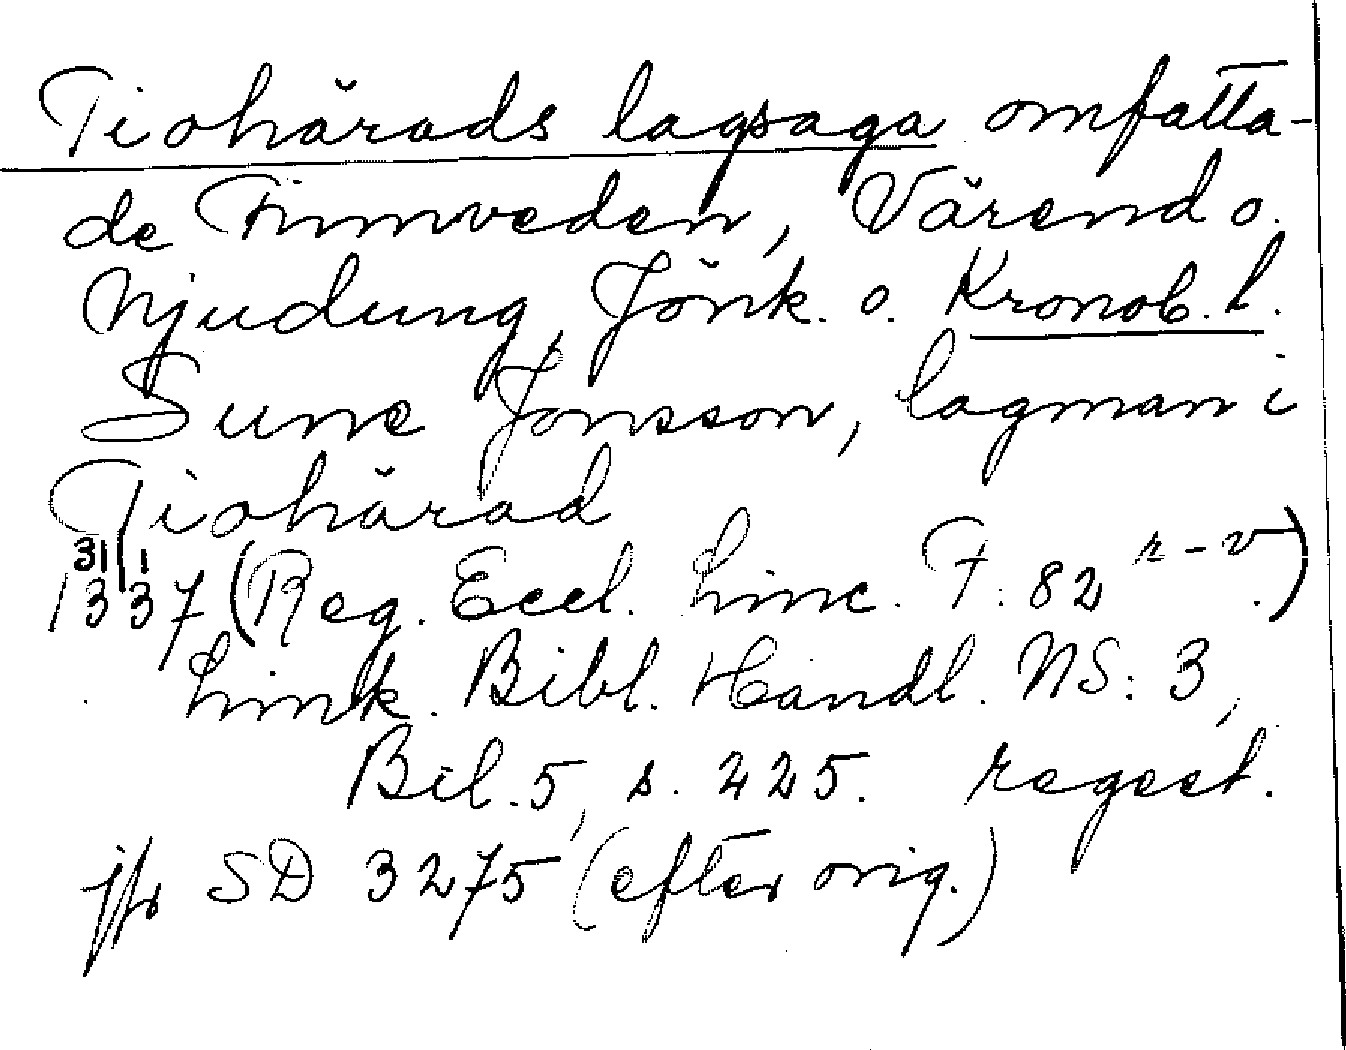 Tiohärads lagsaga omfatta-
de Finnveden, Värend o.
Njudung, Jönk. o. Kronob. l.
Sune Jonsson, lagman i
Tiohärad
31/1
1337 (Reg. Eccl. Linc. F. 82 r-v.)
Link. Bibl. Handl. NS: 3,
Bil. 5, s. 225. regest.
jfr SD 3275 (efter orig.)